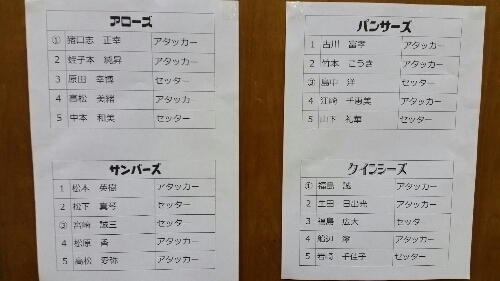 アローズ
① 猪口志 正幸 アタッカー
2 蛭子本 純昇 アタッカー
3 原田 幸博 セッター
4 高松 美緒 アタッカー
5 中本 和美 セッター
サンバーズ
1 松本 英樹 アタッカー
2 松下 真琴 セッター
③ 宮崎 誠三 セッター
4 松原 勇 アタッカー
5 高松 愛弥 アタッカー
パンサーズ
1 古川 富孝 アタッカー
2 竹本 こうき アタッカー
③ 島中 洋 セッター
4 江崎 千恵美 アタッカー
5 山下 礼華 セッター
クインシーズ
① 福島 誠 アタッカー
2 生田 日出光 アタッカー
3 福島 広大 セッター
4 船渕 アタッカー
5 岩崎 千佳子 セッター